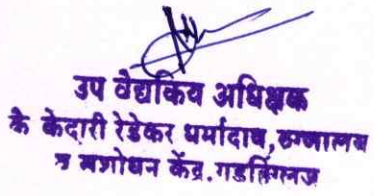 उप वैद्यकिय अधिक्षक
कै केदारी रेडेकर धर्मादाय, रुग्णालय
व संशोधन केंद्र. गडहिंग्लज